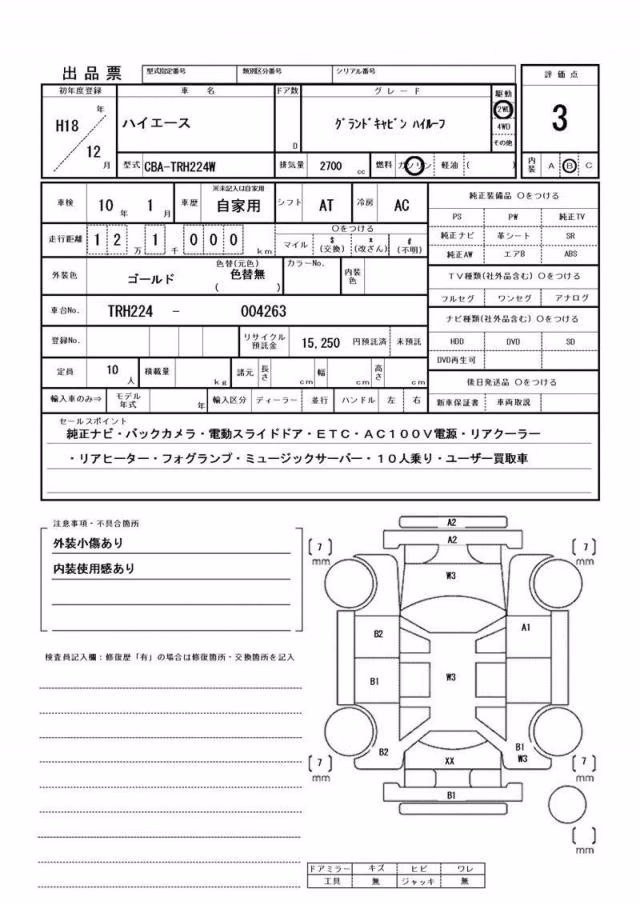 出品票 型式指定番号 類別区分番号 シリアル番号 評価点
初年度登録 車名 ドア数 グレード 駆動
H18 年 12 月 ハイエース D グランドキャビン ハイルーフ 2WD 4WD その他 3
型式 CBA-TRH224W 排気量 2700 cc 燃料 ガソリン 軽油 ( ) 内装 A B C
車検 10 年 1 月 車歴 ※未記入は自家用 自家用 シフト AT 冷房 AC
純正装備品 ○をつける
PS PW 純正TV
純正ナビ 革シート SR
純正AW エアB ABS
走行距離 1 2 万 1 千 0 0 0 km ○をつける マイル $ (交換) * (改ざん) # (不明)
外装色 ゴールド 色替(元色) 色替無 ( ) カラーNo. 内装色
TV種類(社外品含む) ○をつける
フルセグ ワンセグ アナログ
車台No. TRH224 - 004263
ナビ種類(社外品含む) ○をつける
登録No. リサイクル預託金 15,250 円預託済 未預託
HDD DVD SD
DVD再生可
定員 10 人 積載量 kg 諸元 長さ cm 幅 cm 高さ cm
後日発送品 ○をつける
輸入車のみ⇒ モデル年式 年 輸入区分 ディーラー 並行 ハンドル 左 右
新車保証書 車両取説
セールスポイント
純正ナビ・バックカメラ・電動スライドドア・ETC・AC100V電源・リアクーラー
・リアヒーター・フォグランプ・ミュージックサーバー・10人乗り・ユーザー買取車
注意事項・不具合箇所
外装小傷あり
内装使用感あり
検査員記入欄:修復歴「有」の場合は修復箇所・交換箇所を記入
A2
A2
7 mm
7 mm
W3
B2
A1
B1
W3
B2
B1
W3
XX
7 mm
7 mm
B1
mm
ドアミラー キズ ヒビ ワレ
工具 無 ジャッキ 無